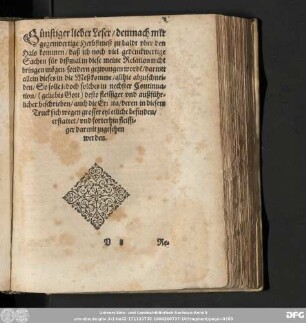 Günstiger lieber Leser / demnach mir
gegenwertige Herbstmeß zu baldt vber den
Hals kommen / daß ich noch viel gedenckwertige
Sachen für dißmal in diese meine Relation nicht
bringen mögen / sondern gezwungen word / damit
allein dieses in die Meß komme / allhie abzuschnei-
den / So solle jedoch solches in nechster Continua-
tion / (geliebts Gott) desto fleissiger vnd außführ-
licher beschrieben / auch die Errata / deren in diesem
Truck sich wegen grosser eyl etliche befinden /
erstattet / vnd forthin fleissi-
ger darmit zugesehen
werden.
Re-